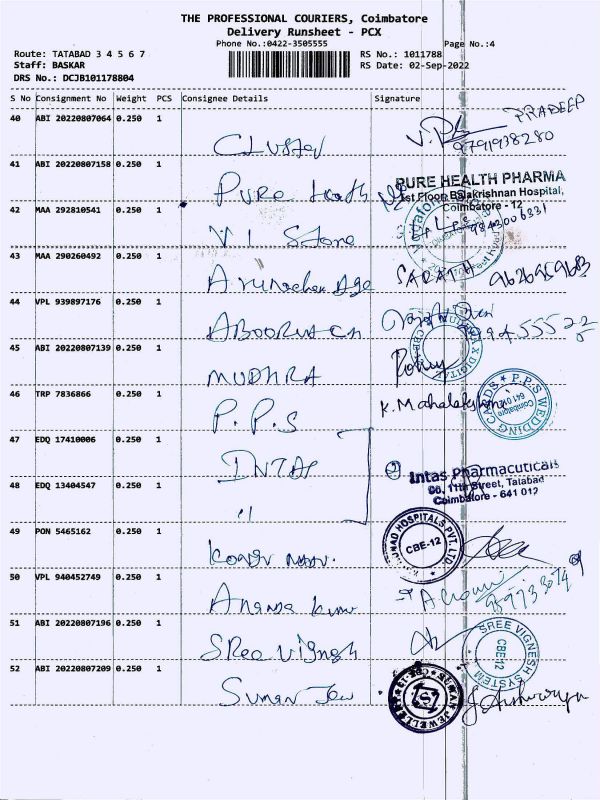 THE PROFESSIONAL COURIERS, Coimbatore
Delivery Runsheet - PCX
Phone No.:0422-3505555
Page No.:4
Route: TATABAD 3 4 5 6 7
RS No.: 1011788
Staff: BASKAR
RS Date: 02-Sep-2022
DRS No.: DCJB101178804
S No Consignment No Weight PCS Consignee Details Signature
40 ABI 20220807064 0.250 1
PRADEEP
9791938280
41 ABI 20220807158 0.250 1
Pure Health
PURE HEALTH PHARMA
1st Floor, Balakrishnan Hospital,
Coimbatore - 12
42 MAA 292810541 0.250 1
V I Stone
9843006331
43 MAA 290260492 0.250 1
SARATH 9626959683
44 VPL 939897176 0.250 1
45 ABI 20220807139 0.250 1
MUDHRA
46 TRP 7836866 0.250 1
P.P.S
K. Mahalakshmi
P.P.S WEDDING CARDS
Coimbatore
641 012
47 EDQ 17410006 0.250 1
INTAS
Intas Pharmacuticals
11th Street, Tatabad
Coimbatore - 641 012
48 EDQ 13404547 0.250 1
"
49 PON 5465162 0.250 1
HOSPITALS PVT. LTD.
CBE-12
50 VPL 940452749 0.250 1
Ananda Kumar
51 ABI 20220807196 0.250 1
Sree Vignesh
SREE VIGNESH SYSTEM
CBE-12
52 ABI 20220807209 0.250 1
Suman Jew
SUMAN JEWELLERS